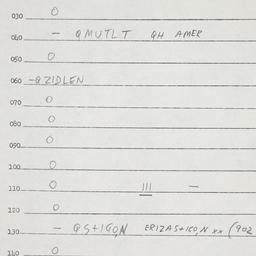 030 O
040 - QMUTLT QH AMER
050 O
060 -QZIDLEN
070 O
080 O
090 O
100 O
110 O III -
120 O
130 - QS+IGON ERIZAS+ICO,N xx (902
140 O